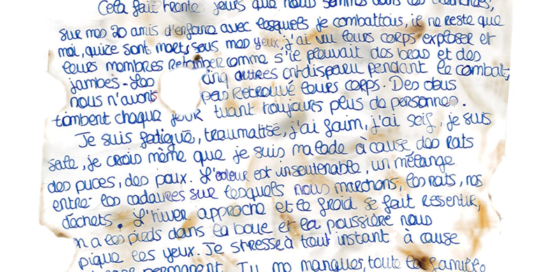 Cela fait trente jours que nous sommes dans les tranchées,
sur mes 20 amis d'enfance avec lesquels je combattais, il ne reste que
moi, quize sont morts, sous mes yeux, j'ai vu leurs corps exploser et
leurs membres retomber comme s'il pleuvait des bras et des
jambes. Les cinq autres ont disparu pendant le combat,
nous n'avons pas retrouvé leurs corps. Des obus
tombent chaque jour tuant toujours plus de personnes.
Je suis fatigué, traumatisé, j'ai faim, j'ai soif, je suis
sale, je crois même que je suis malade à cause des rats
des puces, des poux. L'odeur est insoutenable, un mélange
entre les cadavres sur lesquels nous marchons, les rats, nos
déchets. L'hiver approche et le froid se fait ressentir,
on a les pieds dans la boue et la poussière nous
pique les yeux. Je stresse à tout instant à cause
permanent. Tu me manques, toute la famille